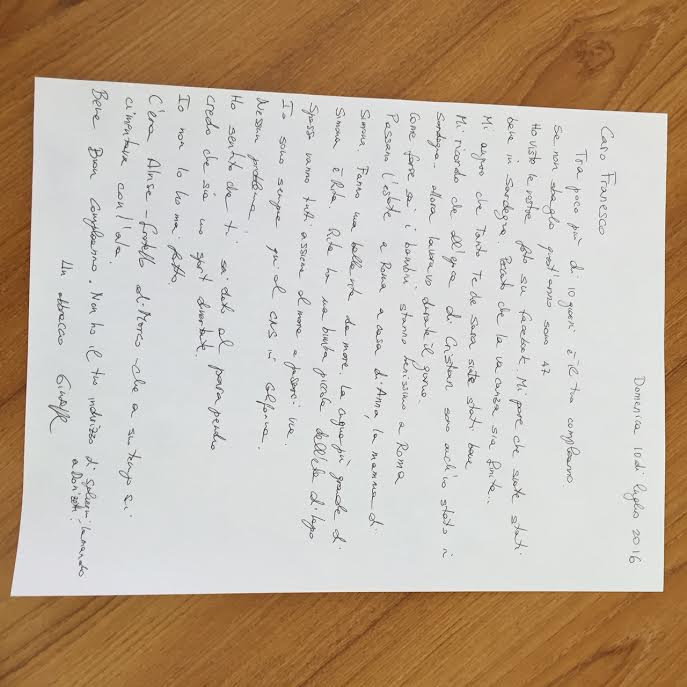 Domenica 10 di luglio 2016
Caro Franesco
Tra poco più di 10 giorni è il tuo compleanno.
Se non sbaglio quest'anno sono 47
Ho visto le vostre foto su facebook. Mi pare che siate stati
bene in Sardegna. Peccato che la vacanza sia finita..
Mi auguro che Tanto Te che Sara siate stati bene
Mi ricordo che all'epoca di Cristian sono anch'io stato in
Sardegna - allora lavoravo durante il giorno
Come forse sai i bambini stanno benissimo a Roma
Passano l'estate a Roma a casa di Anna la mamma di
Simona. Fanno una bella vita da mare. La cugina più grande di
Simona è Rita. Rita ha una bimba piccola dell'età di Lapo
Spesso vanno tutti assieme al mare a
Io sono sempre qui al CNS in California.
Nessun problema
Ho sentito che ti sei dato al parapendio
credo che sia uno sport divertente
Io non l'ho mai fatto.
C'era Alvise - fratello di Marco - che a suo tempo si
cimentava con l'ala.
Bene Buon compleanno. Non ho il tuo indirizzo di
a Donizetti.
Un abbraccio